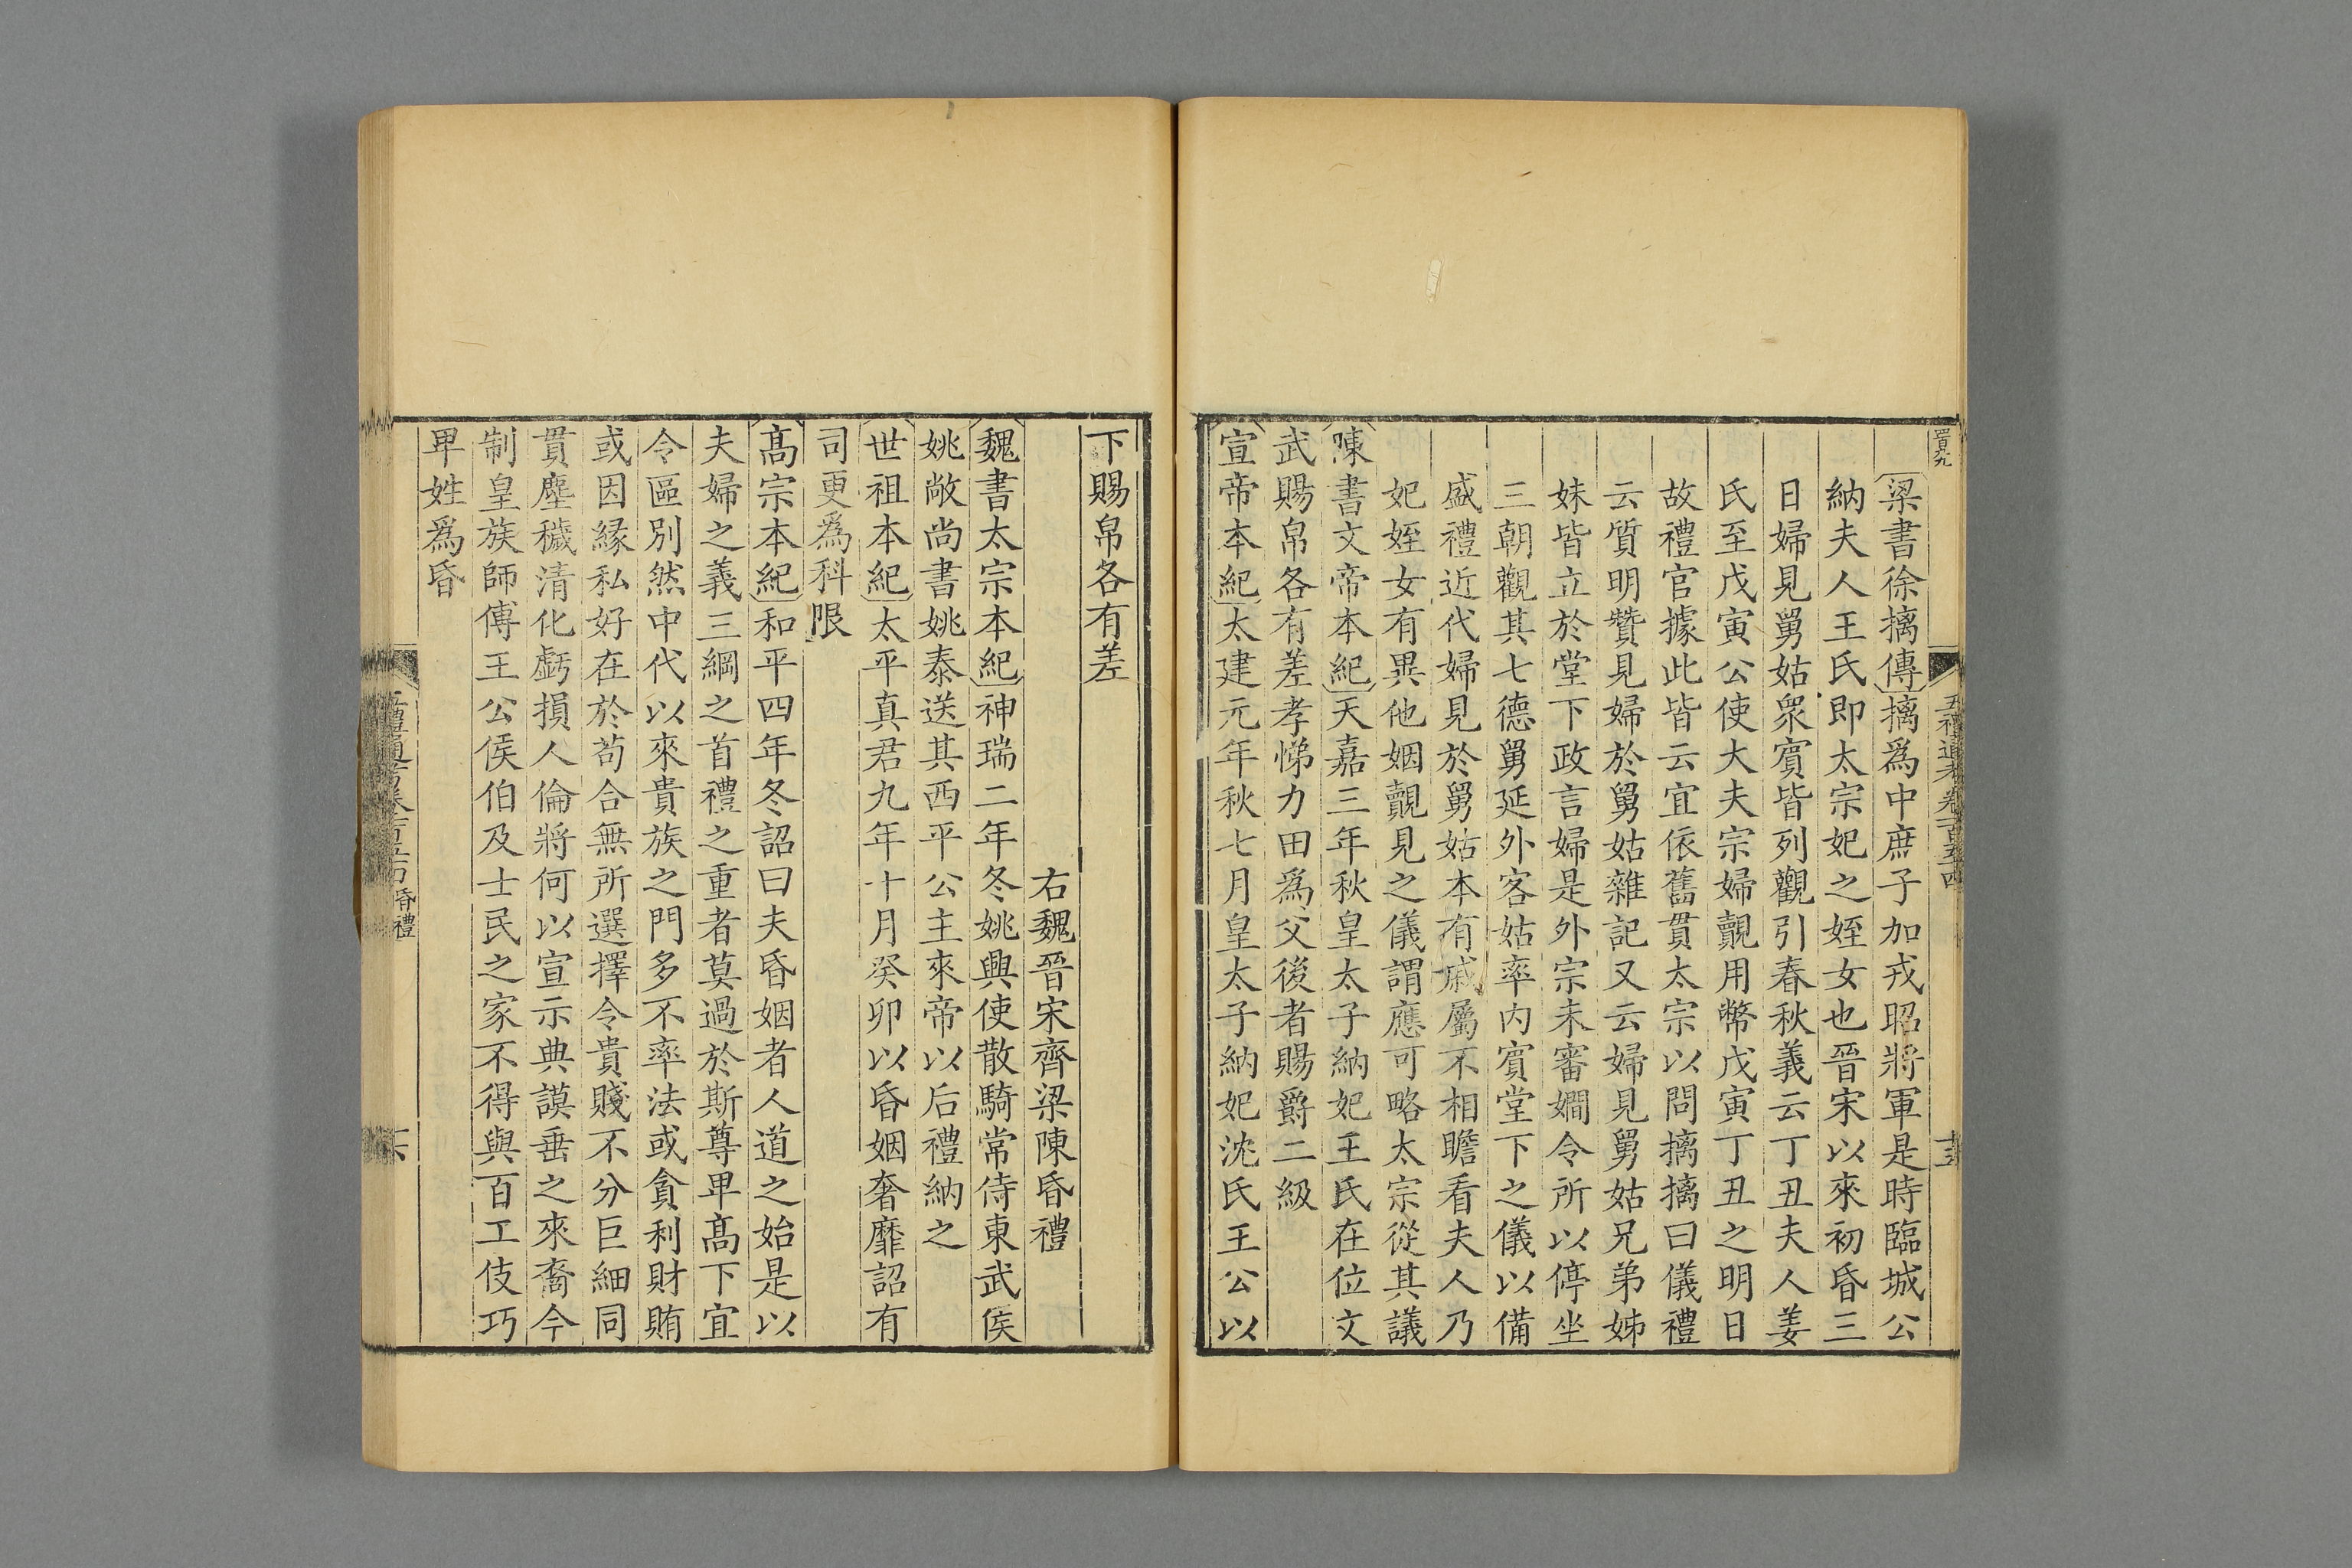 梁書徐摛傳摛爲中庶子加戎昭將軍是時臨城公
納夫人王氏即太宗妃之姪女也晉宋以來初昏三
日婦見舅姑衆賓皆列觀引春秋義云丁丑夫人姜
氏至戊寅公使大夫宗婦覿用幣戊寅丁丑之明日
故禮官據此皆云宜依舊貫太宗以問摛摛曰儀禮
云質明贊見婦於舅姑雜記又云婦見舅姑兄弟姊
妹皆立於堂下政言婦是外宗未審嫺令所以停坐
三朝觀其七德舅延外客姑率内賓堂下之儀以備
盛禮近代婦見於舅姑本有戚屬不相瞻看夫人乃
妃姪女有異他姻覿見之儀謂應可略太宗從其議
陳書文帝本紀天嘉三年秋皇太子納妃王氏在位文
武賜帛各有差孝悌力田爲父後者賜爵二級
宣帝本紀太建元年秋七月皇太子納妃沈氏王公以
下賜帛各有差
右魏晉宋齊梁陳昏禮
魏書太宗本紀神瑞二年冬姚興使散騎常侍東武侯
姚敞尚書姚泰送其西平公主來帝以后禮納之
世祖本紀太平真君九年十月癸卯以昏姻奢靡詔有
司更爲科限
高宗本紀和平四年冬詔曰夫昏姻者人道之始是以
夫婦之義三綱之首禮之重者莫過於斯尊卑高下宜
令區別然中代以來貴族之門多不率法或貪利財賄
或因緣私好在於苟合無所選擇令貴賤不分巨細同
貫塵穢清化虧損人倫將何以宣示典謨垂之來裔今
制皇族師傅王公侯伯及士民之家不得與百工伎巧
卑姓爲昏